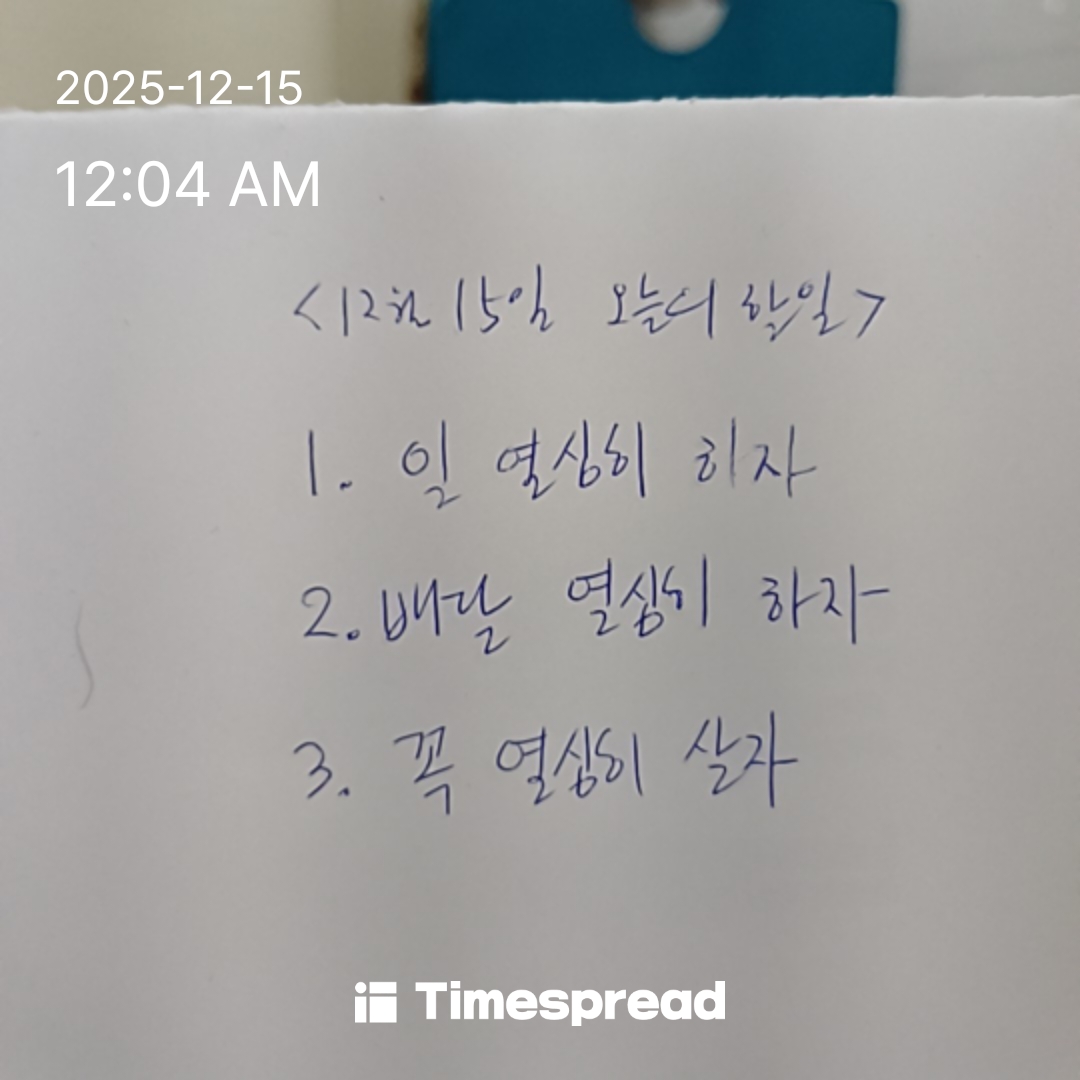 2025-12-15
12:04 AM
<12월 15일 오늘의 할일>
1. 일 열심히 하자
2. 배달 열심히 하자
3. 꼭 열심히 살자
Timespread